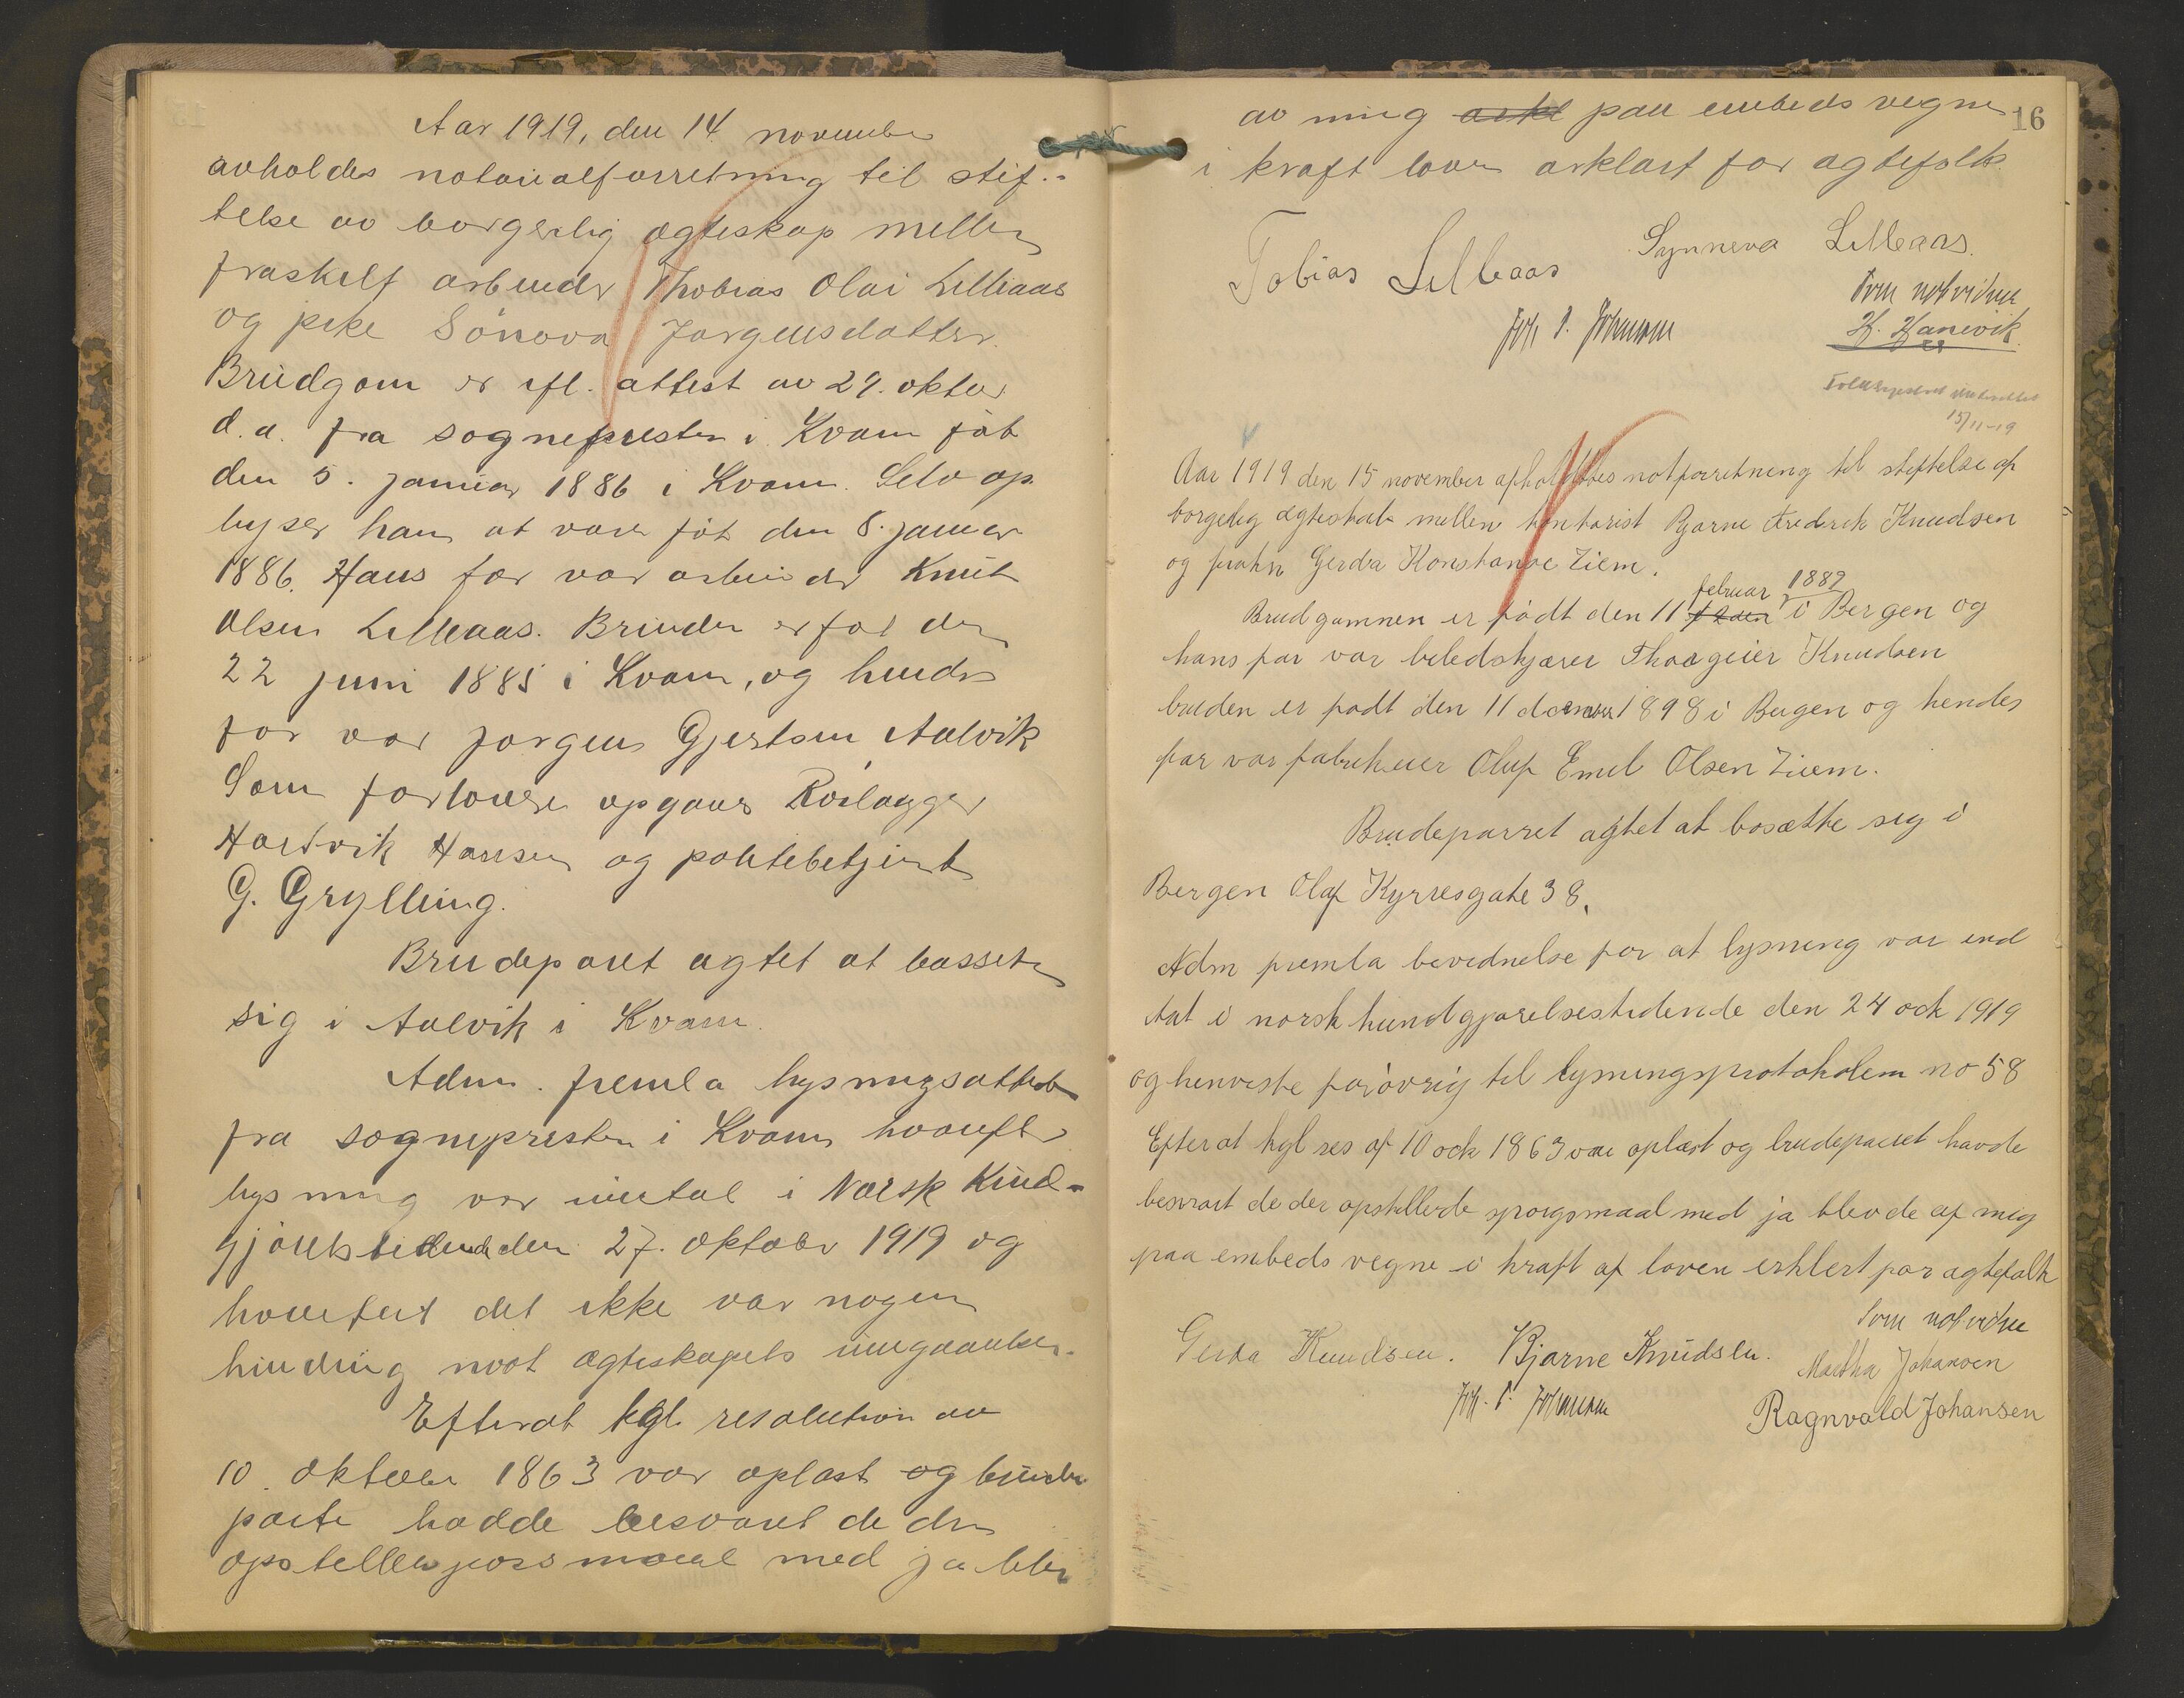 Aar 1919, den 14. november
avholdes notarialforretning til stif-
telse av borgerlig ægteskap mellem
fraskilt arbeider Thobias Olai Lillaas
og pike Sönova Jørgensdatter.
Brudgom er efl. attest av 29. oktbr.
d.a. fra sognepresten i Kvam føt
den 5. januar 1886 i Kvam. Selv op
lyser han at være føt den 8. januar
1886. Hans far var arbeider Knut
Olsen Lillaas. Bruden er føt den
22 juni 1885 i Kvam, og hendes
far var Jørgens Gjertsen Aalvik
Som forlovere opgaves Rörlægger
Hartvik Hansen og politibetjent
G. Grylling.
Brudeparet agtet at bosætte
sig i Aalvik i Kvam.
Adm. fremla lysningsattest
fra sognepresten i Kvam hvorefter
lysning var inntat i Norsk Kund-
gjörelsestidende den 27. oktober 1919 og
hvorefter det ikke var nogen
hindring mot ægteskapets inngaaelse.
Efterat kgl. resolution av
10. oktober 1863 var oplæst og brude
parte hadde besvaret de der
opstillede spørsmaal med ja blev
16
av mig erkl paa embeds vegne
i kraft loven erklært for ægtefolk.
Tobias Lillaas Synneva Lillaas.
Som not vidne
Joh P. Johansen H. Hanevik.
Folkeregistret underrettet
15/11-19
Aar 1919 den 15 november afholdttes notforretning til stiftelse af
borgelig ægteskab mellem kontorist Bjarne Fredrik Knudsen
og frøken Gerda Konstanse Ziem.
februar 1889
Brudgommen er födt den 11 i Bergen og
hans far var biledskjærer Thorgeier Knudsen
bruden er født den 11 december 1898 i Bergen og hendes
far var fabrikeier Oluf Emil Olsen Ziem.
Brudeparret agtet at bosætte sig i
Bergen Olaf Kyrresgate 38.
Adm fremla bevidnelse for at lysning var ind
tat i norsk kundgjørelsestidende den 24 okt 1919
og henviste forövrig til lysningsprotokolem no 58
Efter at kgl res af 10 okt 1863 var oplæst og brudeparret havde
besvart de der opstillede sporgsmaal med ja blev de af mig
paa embeds vegne i kraft af loven erklert for ægtefolk
Som not vidne
Gerda Knudsen. Bjarne Knudsen. Martha Johansen
Joh. P. Johansen Ragnvald Johansen